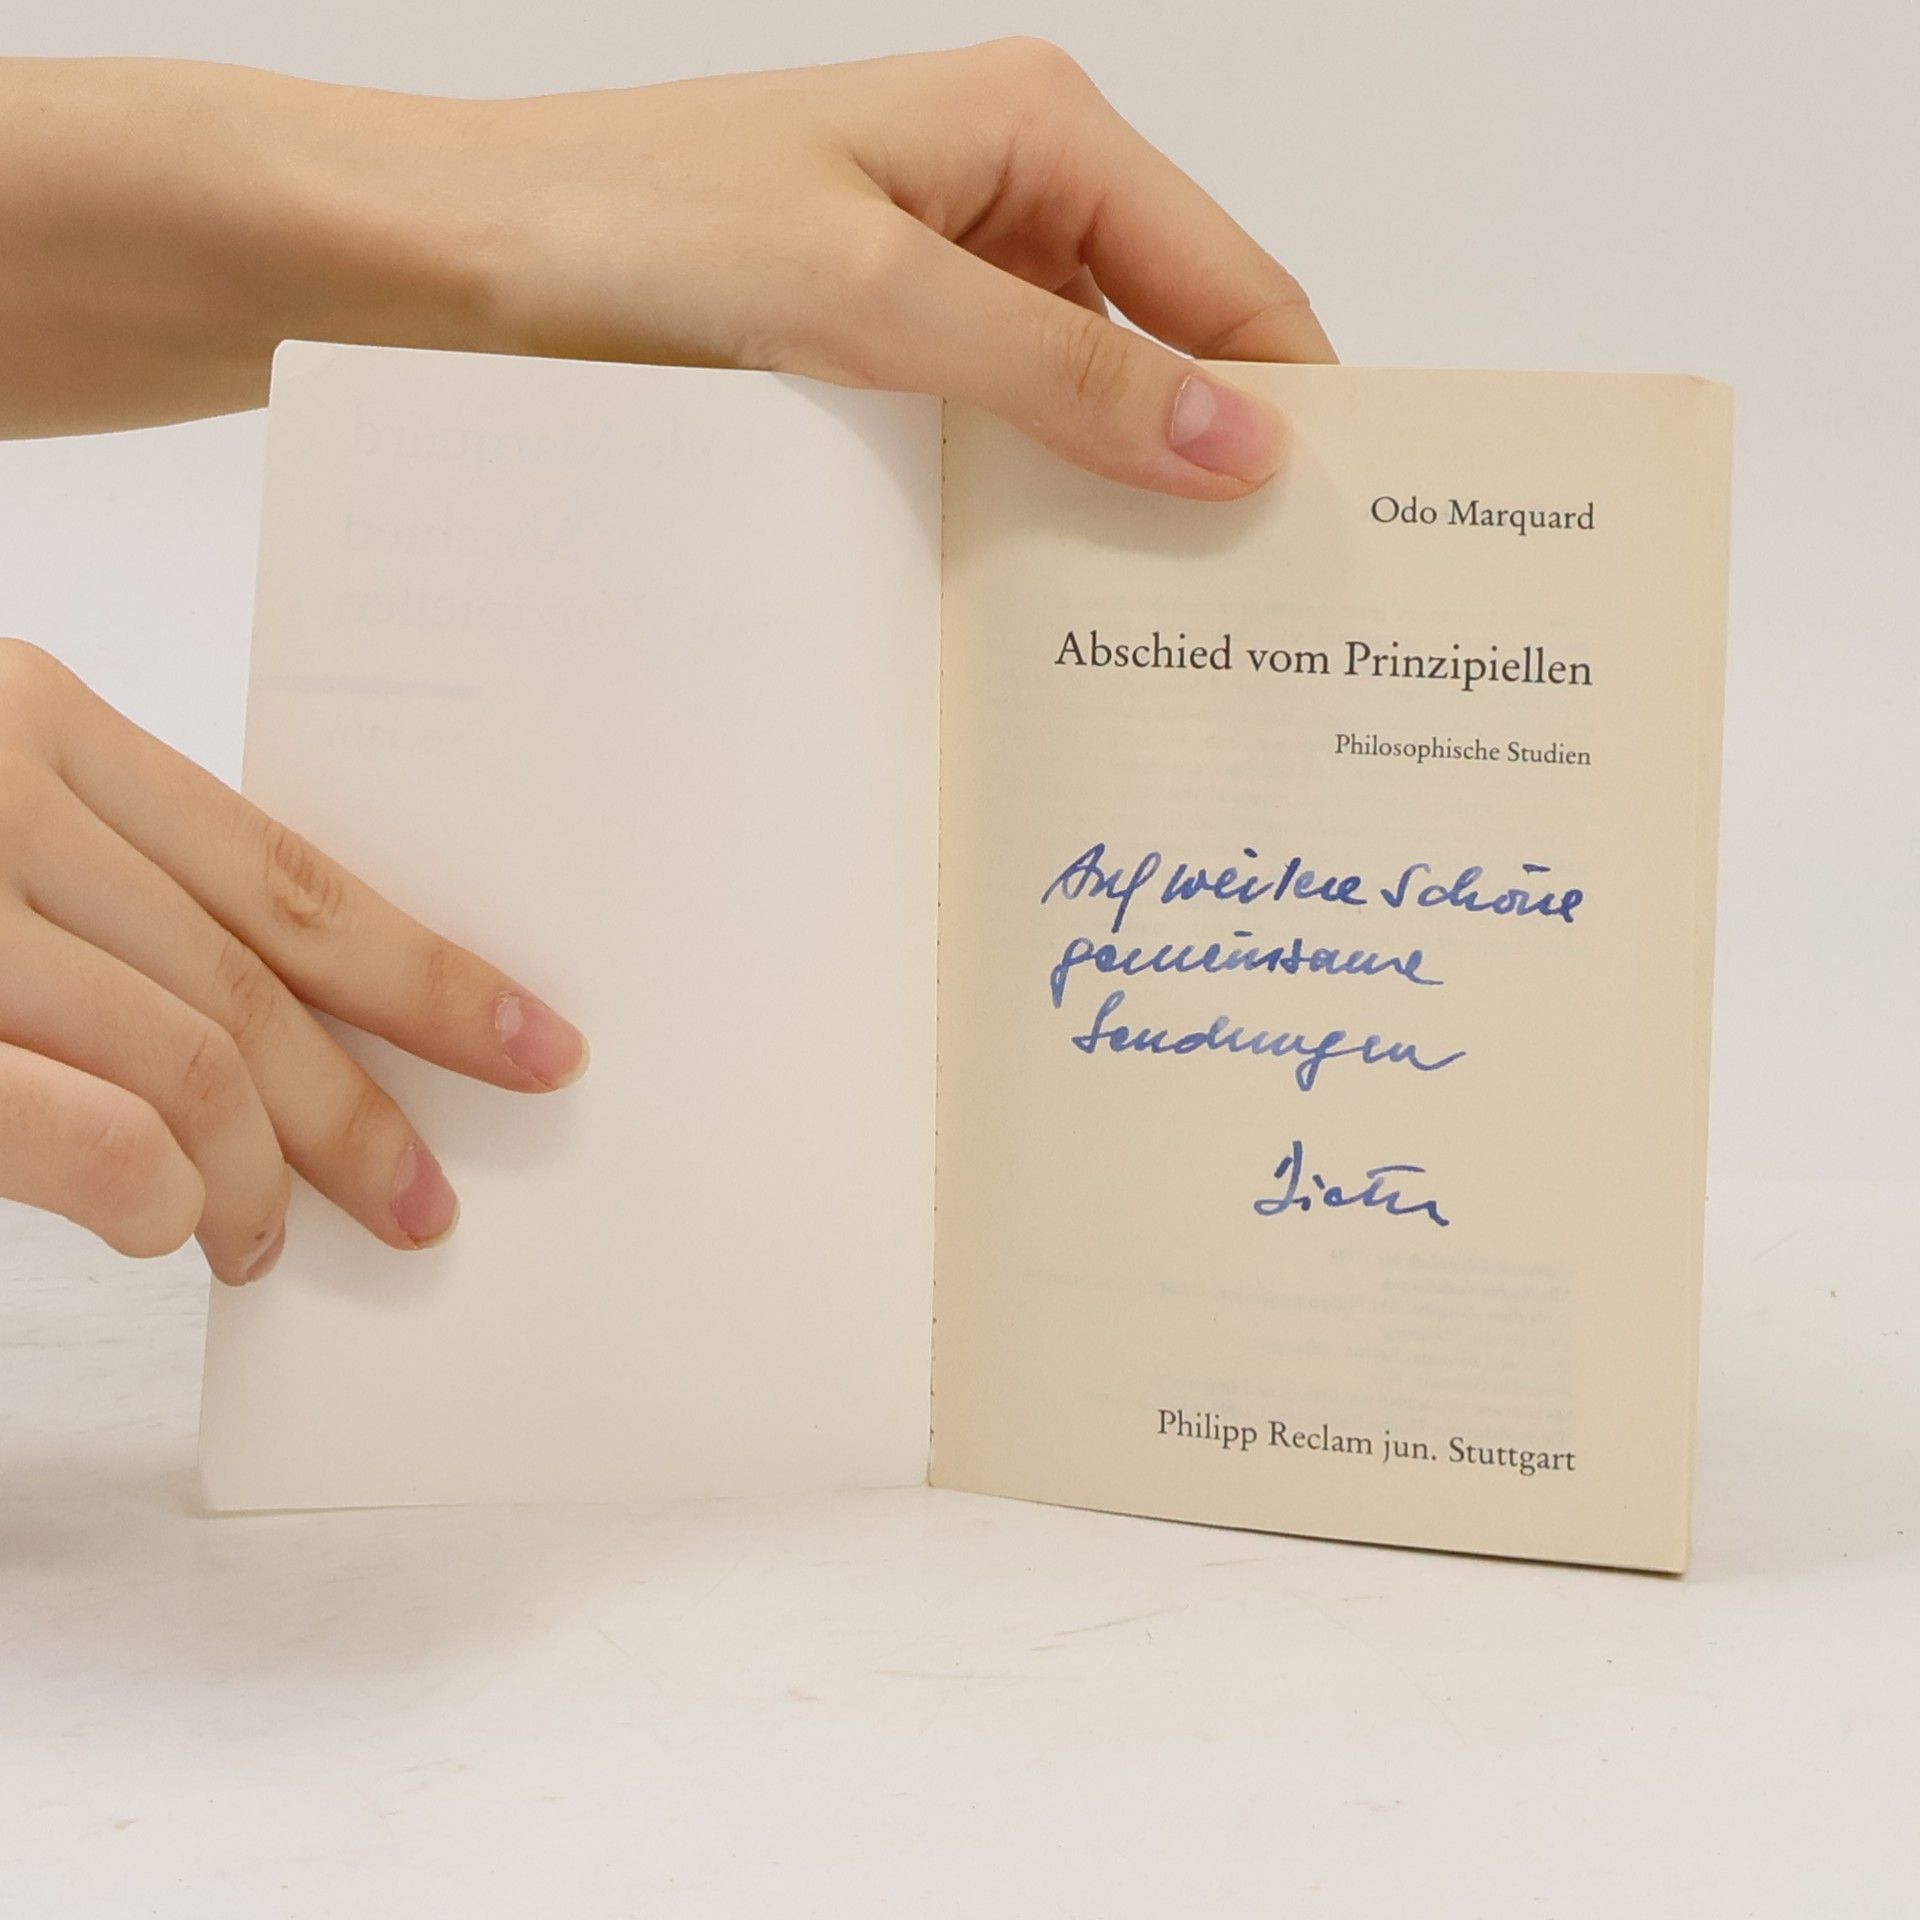 Odo Marquard
Abschied vom Prinzipiellen
Philosophische Studien
Auf weitere schöne
gemeinsame
Sendungen
Dieter
Philipp Reclam jun. Stuttgart